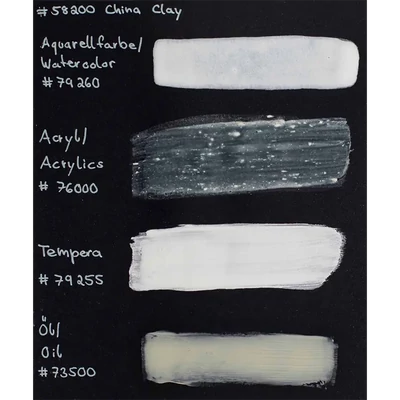 #58200 China Clay
Aquarellfarbe/
Watercolor
#79260
Acryl/
Acrylics
# 76000
Tempera
# 79255
Öl/
Oil
#73500